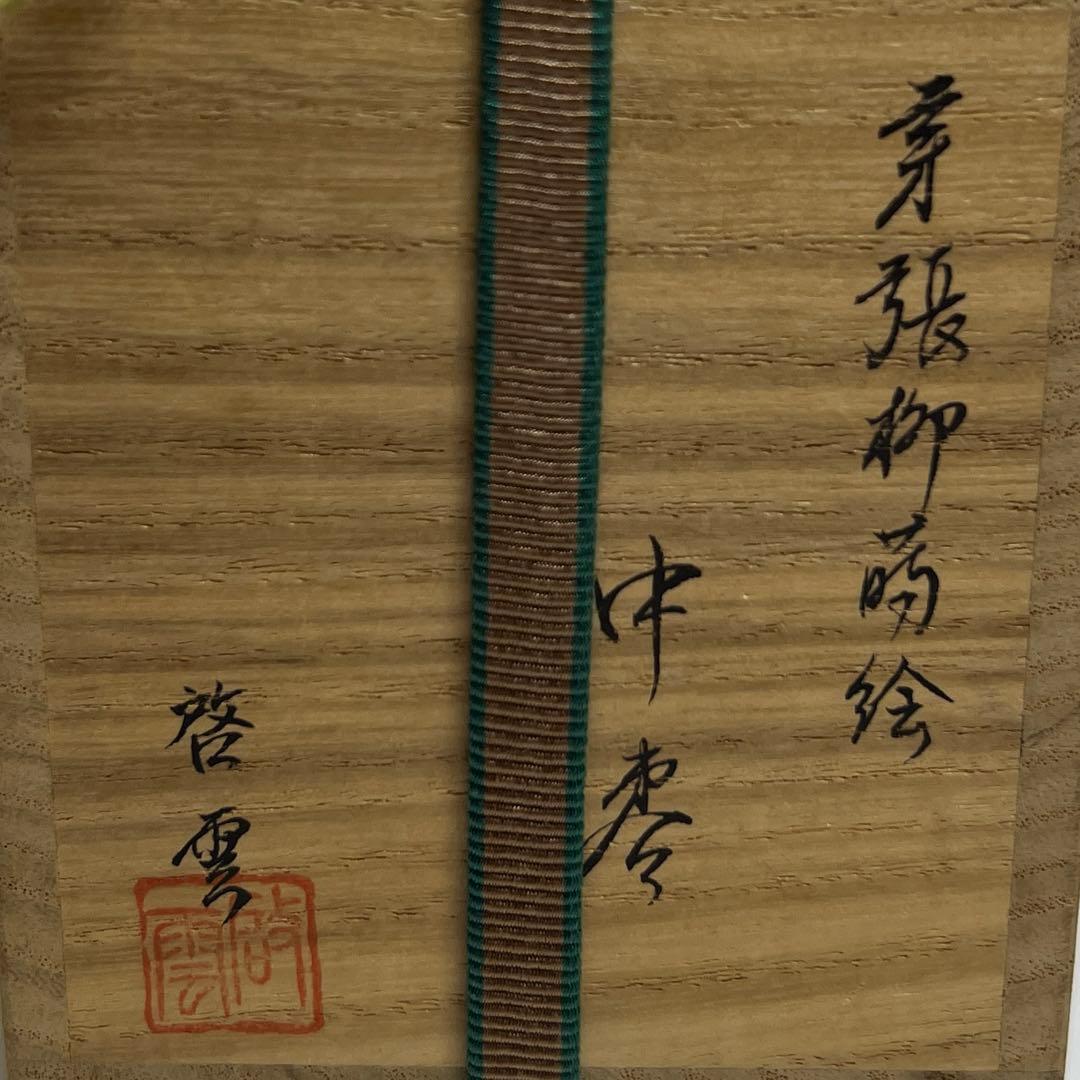 芽張柳蒔絵
中棗
啓雲
啓雲